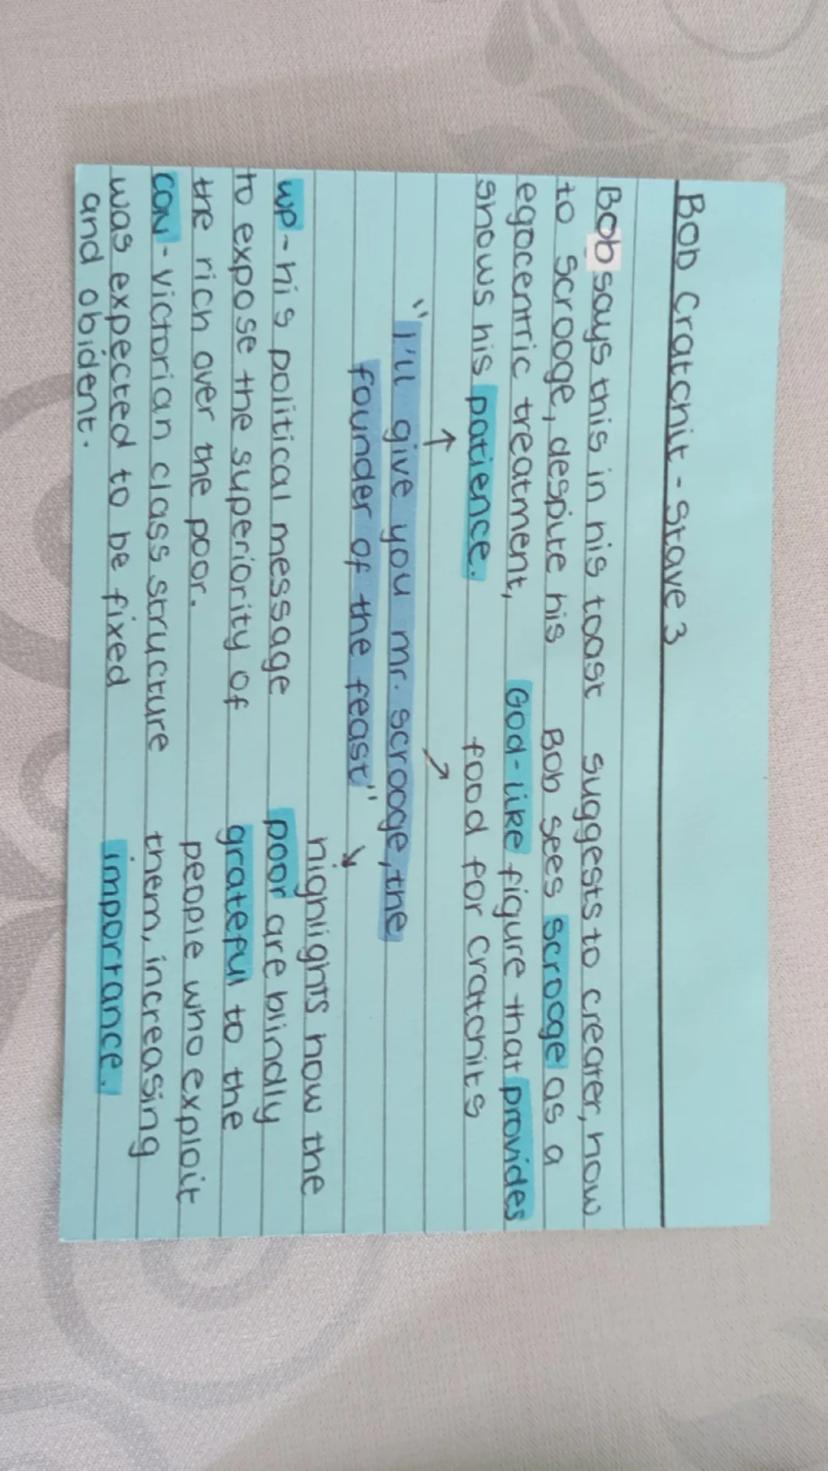 Bob Cratchit - Stave 3
Bob says this in his toast
to Scrooge, despite his
egocentric treatment,
shows his patience.
suggests to creater, how
Bob sees scrooge as a
God-like figure that provides
food for cratchits
"I'll give you mr. scrooge, the
founder of the feast"
wp - his political message
to expose the superiority of
the rich over the poor.
con - victorian class structure
was expected to be fixed
and obident.
highlights how the
poor are blindly
grateful to the
people who exploit
them, increasing
importance.